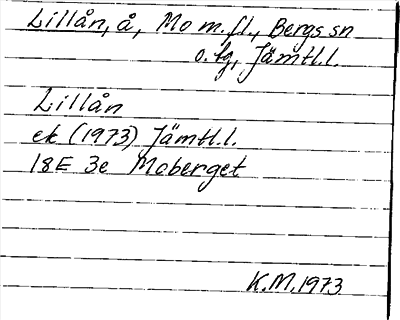 Lillån, å, Mo m.fl., Bergs sn
o. tg, Jämtl.l.
Lillån
ek (1973) Jämtl.l.
18E 3e Moberget
K.M. 1973